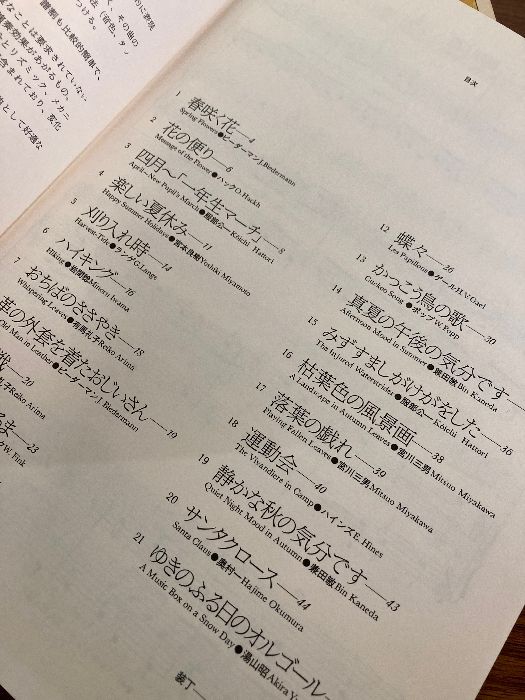 的に表現
く、その曲の
法（音色、タッ
つける。
譜割も比較的簡単で、
なことは要求されていない
奏効果があがるもの。
とリズミック、メカニ
含まれており、変化
として好適な
目次
1
春咲く花—4
Spring Flowers●ビーダーマンJ.Biedermann
2
花の便り—6
Message of the Flower●ハックO.Hackh
3
四月〜「一年生マーチ」—8
April〜New Pupil's March●服部公一Kōichi Hattori
4
楽しい夏休み—11
Happy Summer Holidays●宮本良樹Yoshiki Miyamoto
5
刈り入れ時—14
Harvest-Tide●ランゲG.Lange
6
ハイキング—16
Hiking●岩間稔Minoru Iwama
7
おちばのささやき—18
Whispering Leaves●有馬礼子Reiko Arima
革の外套を着たおじいさん—19
Old Man in Leather●ビーダーマンJ.Biedermann
戦—20
礼子Reiko Arima
るま—23
クW.Fink
12
蝶々—26
Les Papillons●ゲールH.V.Gael
13
かっこう鳥の歌—30
Cuckoo Song●ポップW.Popp
14
真夏の午後の気分です—
Afternoon Mood in Summer●兼田敏Bin Kaneda
15
みずすましがけがをした—36
The Injured Waterstrider●服部公一Kōichi Hattori
16
枯葉色の風景画—38
A Landscape in Autumn Leaves●宮川三男Mitsuo Miyakawa
17
落葉の戯れ—39
Playing Fallen Leaves●宮川三男Mitsuo Miyakawa
18
運動会—40
The Vivandiere in Camp●ハインズE.Hines
19
静かな秋の気分です—43
Quiet Night Mood in Autumn●兼田敏Bin Kaneda
20
サンタクロース—44
Santa Claus●奥村一Hajime Okumura
21
ゆきのふる日のオルゴール—
A Music Box on a Snow Day●湯山昭Akira Y
装丁—